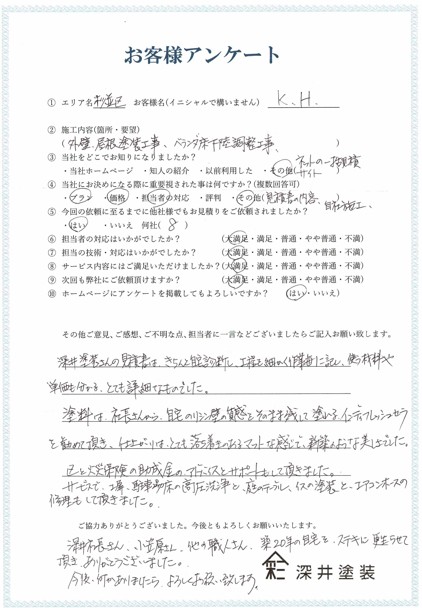 お客様アンケート
① エリア名 杉並区 お客様名(イニシャルで構いません) K.H.
② 施工内容(箇所・要望)
(外壁、屋根塗装工事、ベランダ床下 調整工事、
③ 当社をどこでお知りになりましたか?
・当社ホームページ ・知人の紹介 ・以前利用した ・その他(ネットの一括見積サイト)
④ 当社にお決めになる際に重要視された事は何ですか?(複数回答可)
・プラン ・価格 ・担当者の対応 ・評判 ・その他(見積書の内容、自社施工、
⑤ 今回の依頼に至るまでに他社様でもお見積りをご依頼されましたか?
・はい ・いいえ 何社( 8 )
⑥ 担当者の対応はいかがでしたか? (大満足・満足・普通・やや普通・不満)
⑦ 担当の技術・対応はいかがでしたか? (大満足・満足・普通・やや普通・不満)
⑧ サービス内容にはご満足いただけましたか? (大満足・満足・普通・やや普通・不満)
⑨ 次回も弊社にご依頼頂けますか? (大満足・満足・普通・やや普通・不満)
⑩ ホームページにアンケートを掲載してもよろしいですか? (はい・いいえ)
その他ご意見、ご感想、ご不明な点、担当者に一言などございましたらご記入お願い致します。
深井塗装さんの見積書は、きちんと 診断し、工程を細かく に記し、使う材料や
単価も分かる、とても詳細なものでした。
塗料は、社長さんから、自宅のリシン壁の質感をそのまま残して塗れる、インディフレッシュセラ
を勧めて頂き、仕上がりは、とても落ち着きのあるマットな感じで、新築のような美しさでした。
区と火災保険の助成金のアドバイスとサポートもして頂きました。
サービスで、 、駐車場床の高圧洗浄と、庭のテーブル、イスの塗装と、エアコンホースの
修理もして頂きました。
ご協力ありがとうございました。今後ともよろしくお願いいたします。
深井社長さん、小笠原さん、他の職人さん、築20年の自宅を、ステキに更生させて
頂き、ありがとうございました。
今後、何かありましたら、よろしくお願い致します。
深井塗装